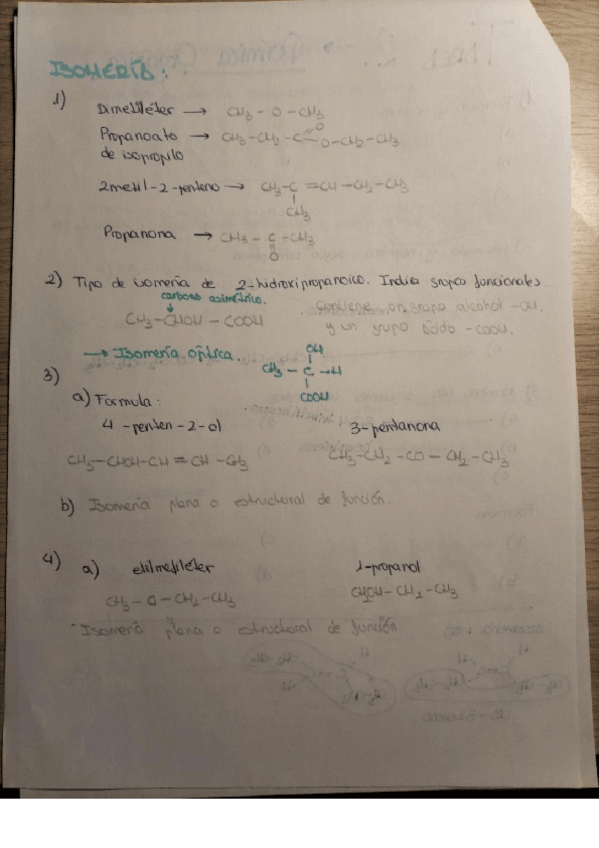 ISOMERÍA:
1)
Dimetiléter → CH3 - O - CH3
Propanoato → CH3-CH2-C=O O-CH2-CH3
de isopropilo
2metil-2-penteno → CH3-C=CH-CH2-CH3
CH3
Propanona → CH3-C-CH3
O
2) Tipo de isomería de 2-hidroxipropanoico. Indica grupos funcionales.
carbono asimétrico.
CH3-CHOH-COOH
Contiene un grupo alcohol -OH,
y un grupo ácido -COOH.
→ Isomería óptica.
OH
CH3 - C - H
COOH
3)
a) Formula:
4-penten-2-ol 3-pentanona
CH3-CHOH-CH=CH-CH3 CH3-CH2-CO-CH2-CH3
b) Isomería plana o estructural de función.
4) a) etilmetiléter 1-propanol
CH3-O-CH2-CH3 CH2OH-CH2-CH3
Isomería plana o estructural de función